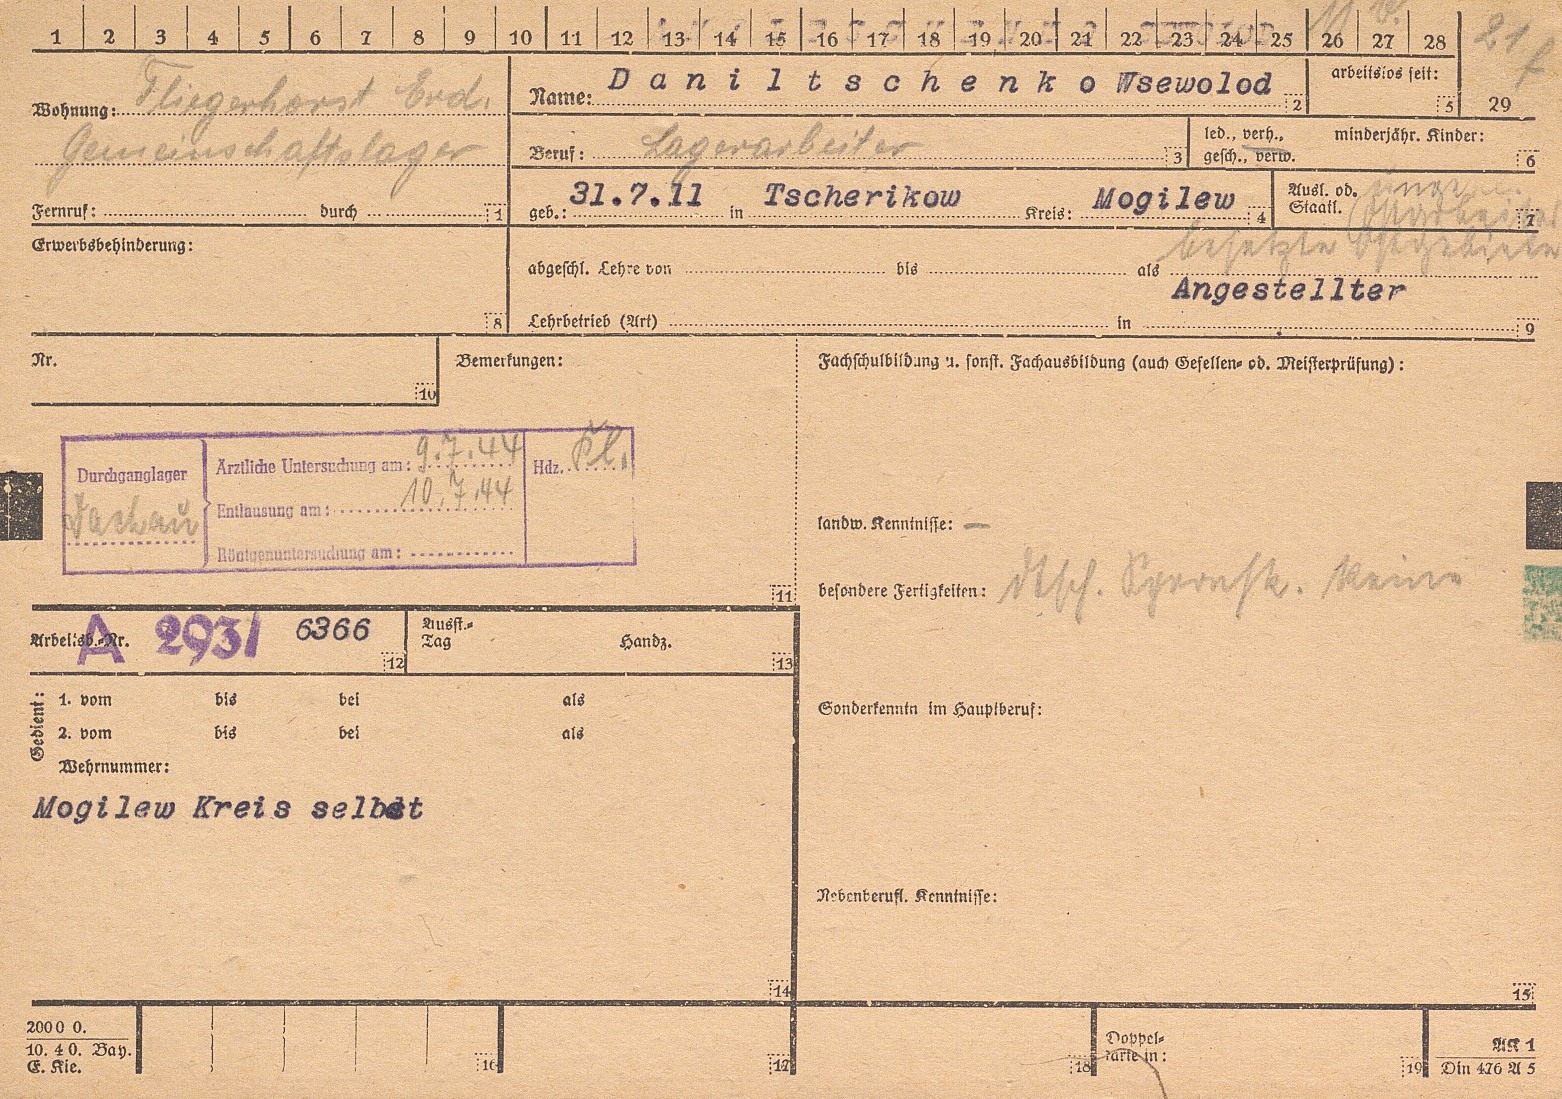 1 2 3 4 5 6 7 8 9 10 11 12 13 14 15 16 17 18 19 20 21 22 23 24 25 26 27 28
21
29
Wohnung: Fliegerhorst Erd.
Gemeinschaftslager
Fernruf: durch 1
Name: Daniltschenko Wsewolod 2
arbeitslos seit: 5
Beruf: Lagerarbeiter 3
led., verh., minderjähr. Kinder:
gesch., verw. 6
geb.: 31.7.11 in Tscherikow Kreis: Mogilew 4
Ausl. od.
Staatl. Ostarbeiter 7
besetzte Ostgebiete
Erwerbsbehinderung: 8
abgeschl. Lehre von bis als
Angestellter
Lehrbetrieb (Art) in 9
Nr. 10
Bemerkungen:
Durchganglager
Dachau
Ärztliche Untersuchung am: 9.7.44
Entlausung am: 10.7.44
Röntgenuntersuchung am:
Hdz.
11
Fachschulbildung u. sonst. Fachausbildung (auch Gesellen- od. Meisterprüfung):
landw. Kenntnisse: —
besondere Fertigkeiten: dtsch. Sprachk. keine
Sonderkenntn im Hauptberuf:
Nebenberufl. Kenntnisse:
15
Arbeitsb.-Nr. A 293/ 6366 12
Ausst.-
Tag Handz. 13
Gedient:
1. vom bis bei als
2. vom bis bei als
Wehrnummer:
Mogilew Kreis selbst
14
2000 0.
10. 40. Bay.
E. Kie.
16 17 18
Doppel-
karte in: 19
AK 1
Din 476 A 5